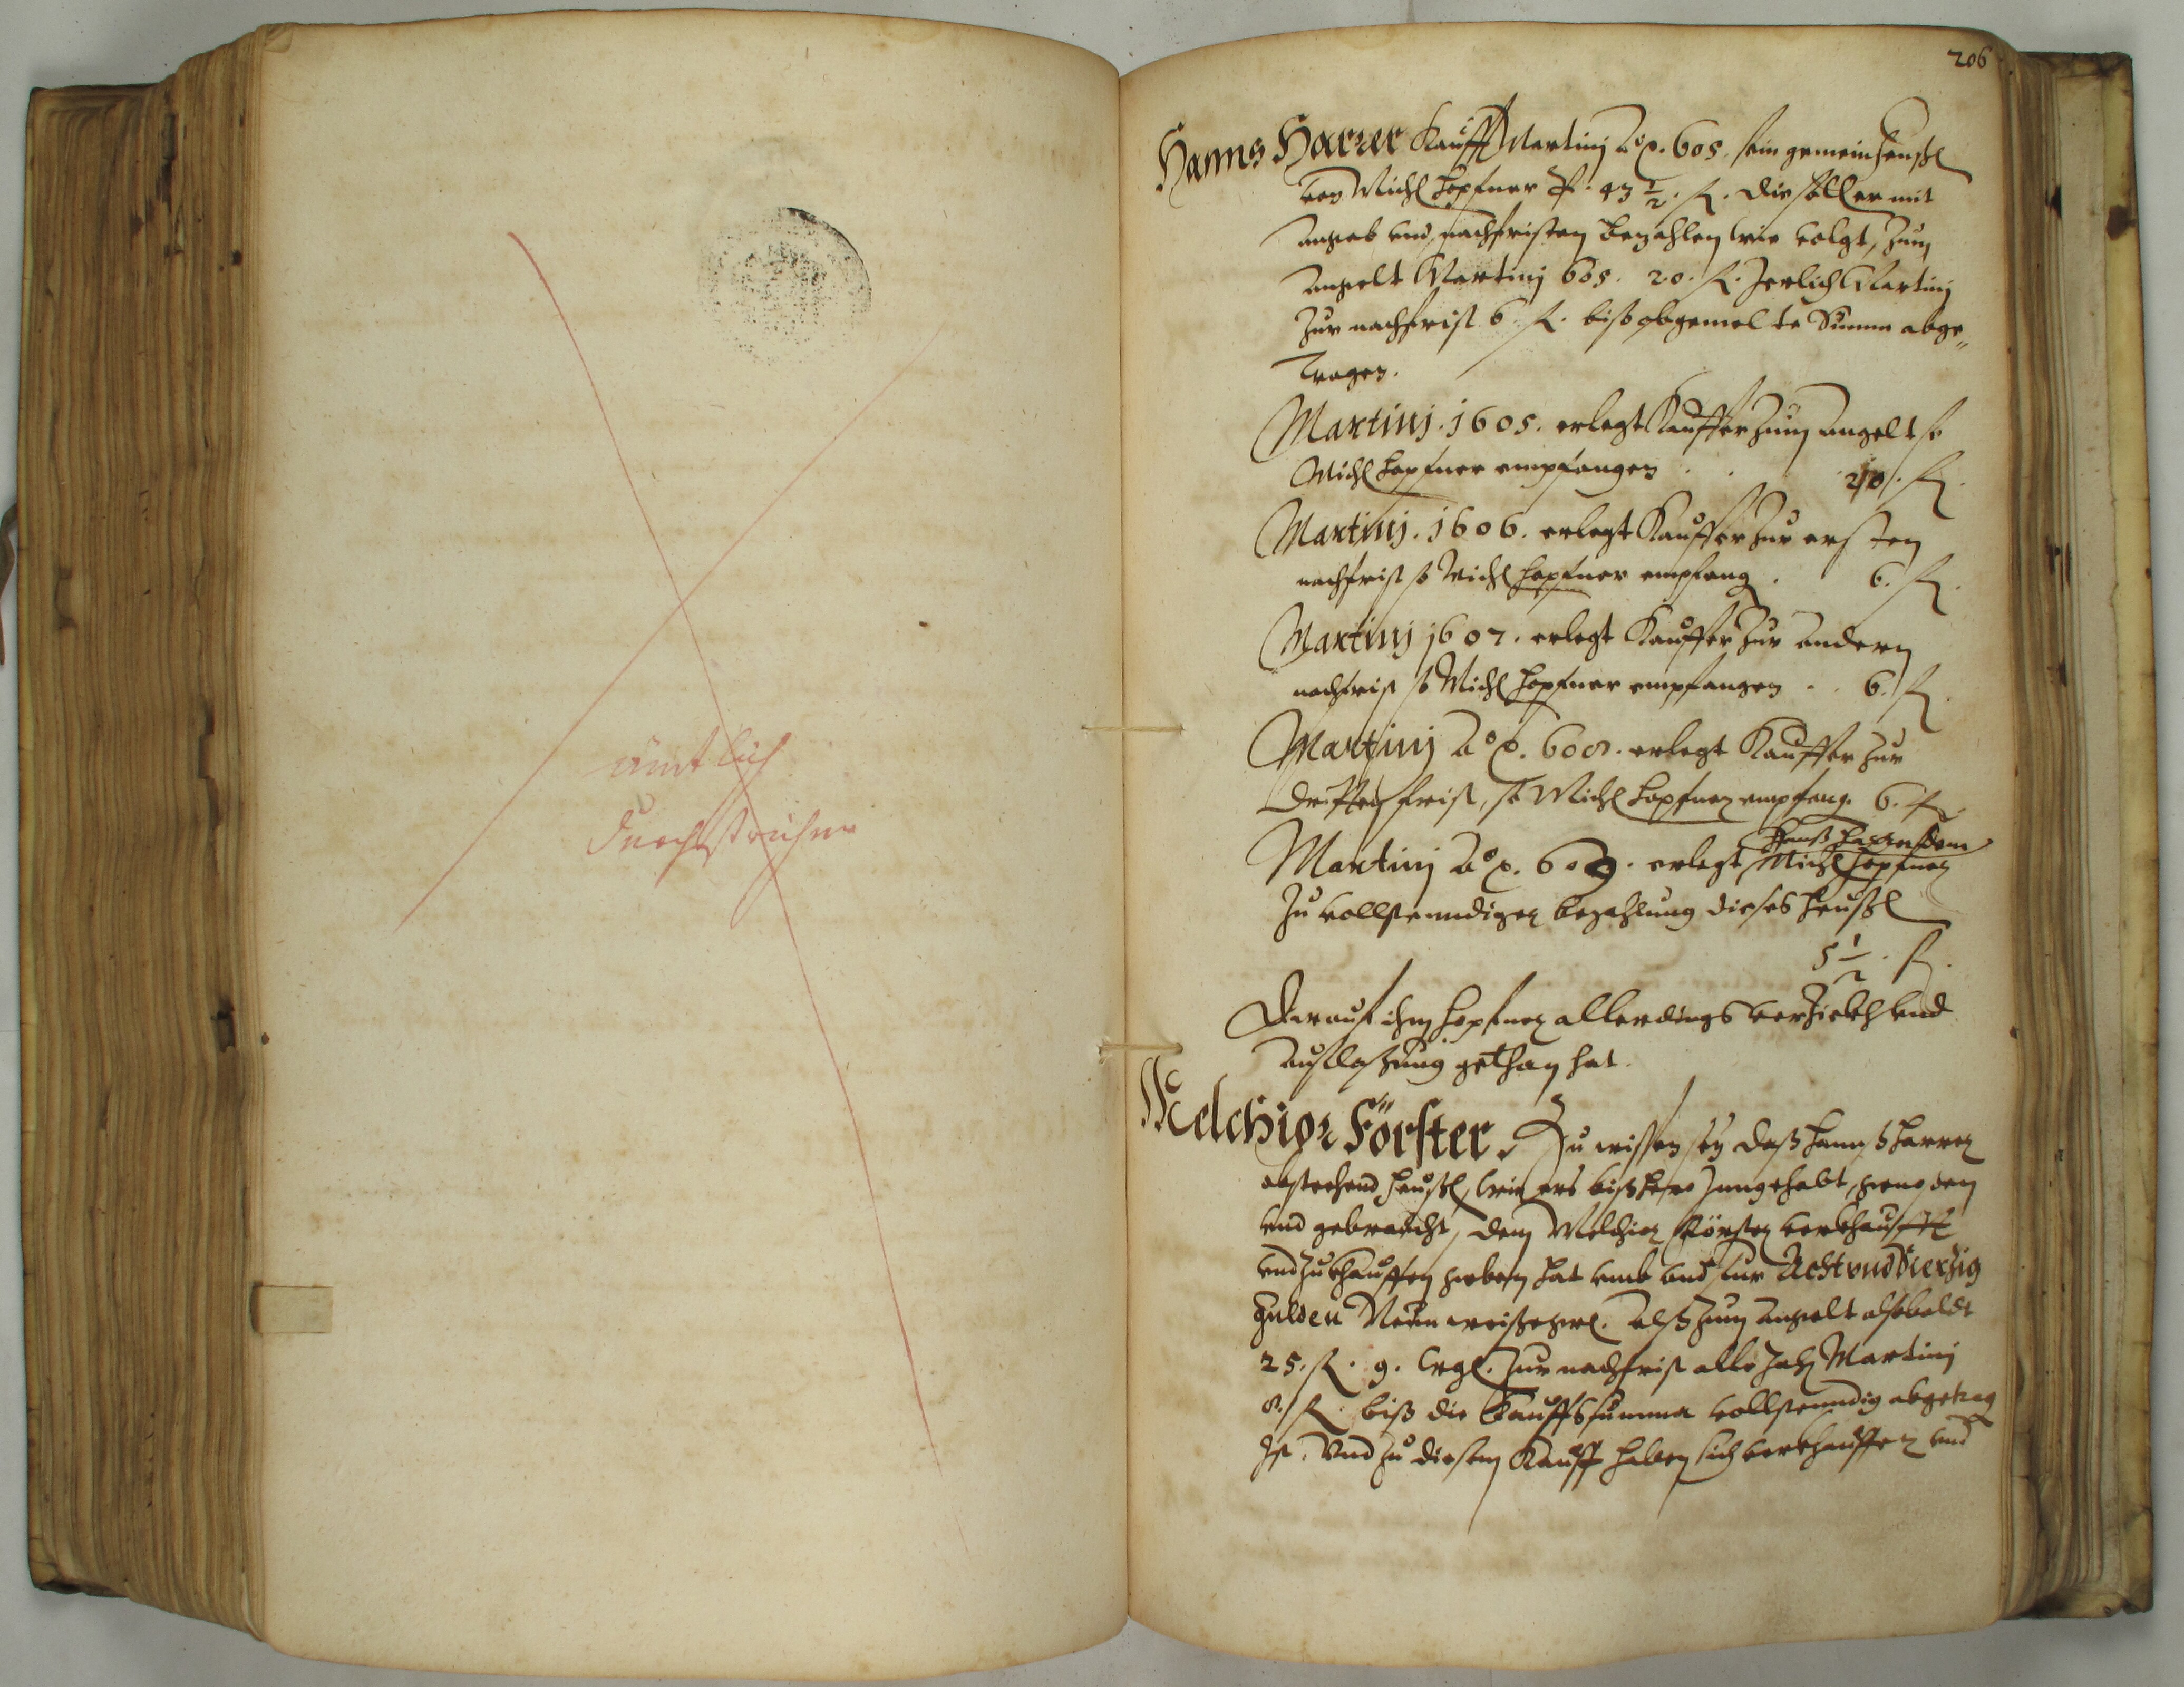 ämtlich
durchstrichen
206
Hanns Harrer Kaufft Martinj Aō. 605. sein gemein heußl
von Michl Hopfner p. 43 ½. fl. die soll er mit
angab vnd nachfristen bezahlen wie volgt, Zum
angelt Martinj 605. 20. fl. Jerlich Martinj
Zur nachfrist 6. fl. biß obgemelte Summ abge„
tragen.
Martinj. 1605. erlegt Kauffer Zum angelt so
Michl Hopfner empfangen . . 20. fl.
Martinj. 1606. erlegt Kauffer Zur ersten
nachfrist so Michl Hopfner empfang . 6. fl.
Martinj 1607. erlegt Kauffer Zur andern
nachfrist so Michl Hopfner empfangen . . 6. fl.
Martinj Aō. 608. erlegt Kauffer Zur
dritten frist, so Michl Hopfner empfang. 6. fl.
Hanß Harrer dem
Martinj Aō. 609. erlegt Michl Hopfner
Zu vollstenndiger bezahlung dieses heußl
5 ½. fl.
Darauf ihm Hopfner allerdings verzieh vnd
außlaßung gethan hat.
Melchior Förster. Zu wissen sey daß Hannß Harrer
abstehend heußl, wie ers bißhero Inngehabt, genoßen
vnd gebraucht, dem Melchior Förster verkhaufft
vnd Zukhauffen geben hat vmb vnd fur Acht vnd Vierzig
gulden Neun weißgrl. alß Zum angelt alßbaldt
25. fl. 9. wgl. Zur nachfrist alle Jahr Martinj
8. fl. biß die Kauffssumma vollstenndig abgetrag
Ist. Vnd Zu diesem Kauff haben sich verkhauffer vnd